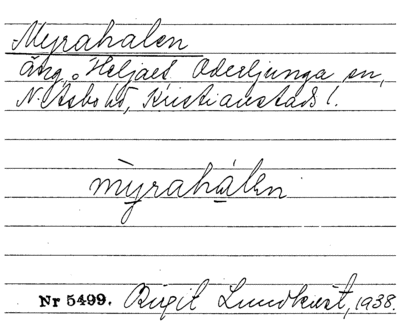 Myrahalen
äng, Heljaed Oderljunga sn,
N. Åsbo hd, Kristianstads l.
mỳrahálen
Nr 5499. Birgit Lundkvist, 1938.